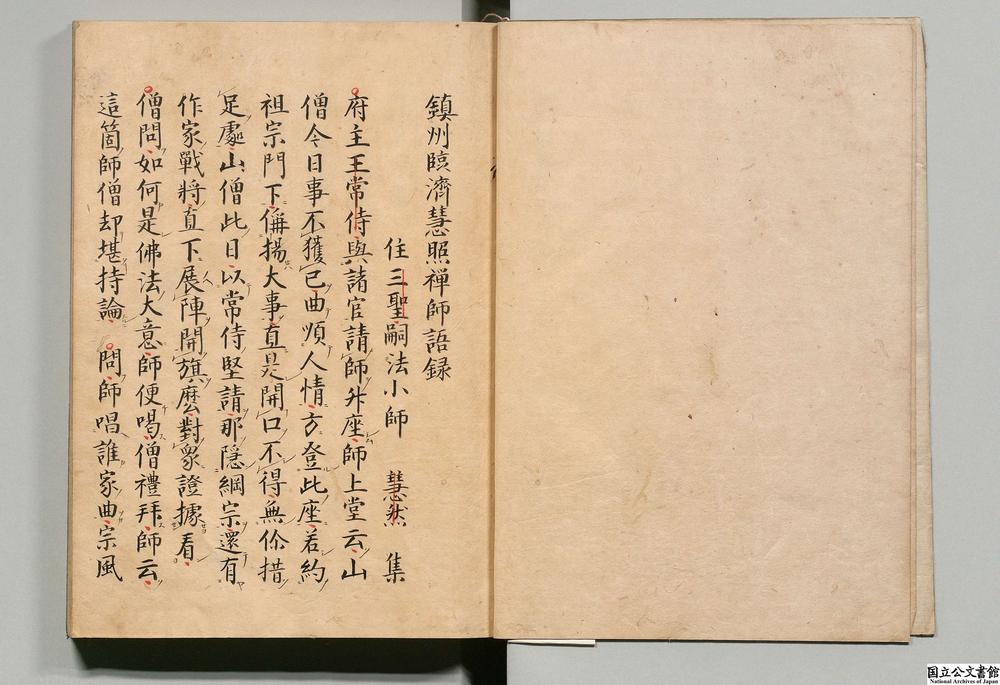 鎮州臨濟慧照禅師語録
住三聖嗣法小師　慧然　集
府主王常侍與諸官請師升座師上堂云山
僧今日事不獲已曲順人情方登此座若約
祖宗門下偁揚大事直是開口不得無你措
足處山僧此日以常侍堅請那隠綱宗還有
作家戰將直下展陣開旗麼對衆證據看
僧問如何是佛法大意師便喝僧禮拜師云
這箇師僧却堪持論　問師唱誰家曲宗風
国立公文書館
National Archives of Japan